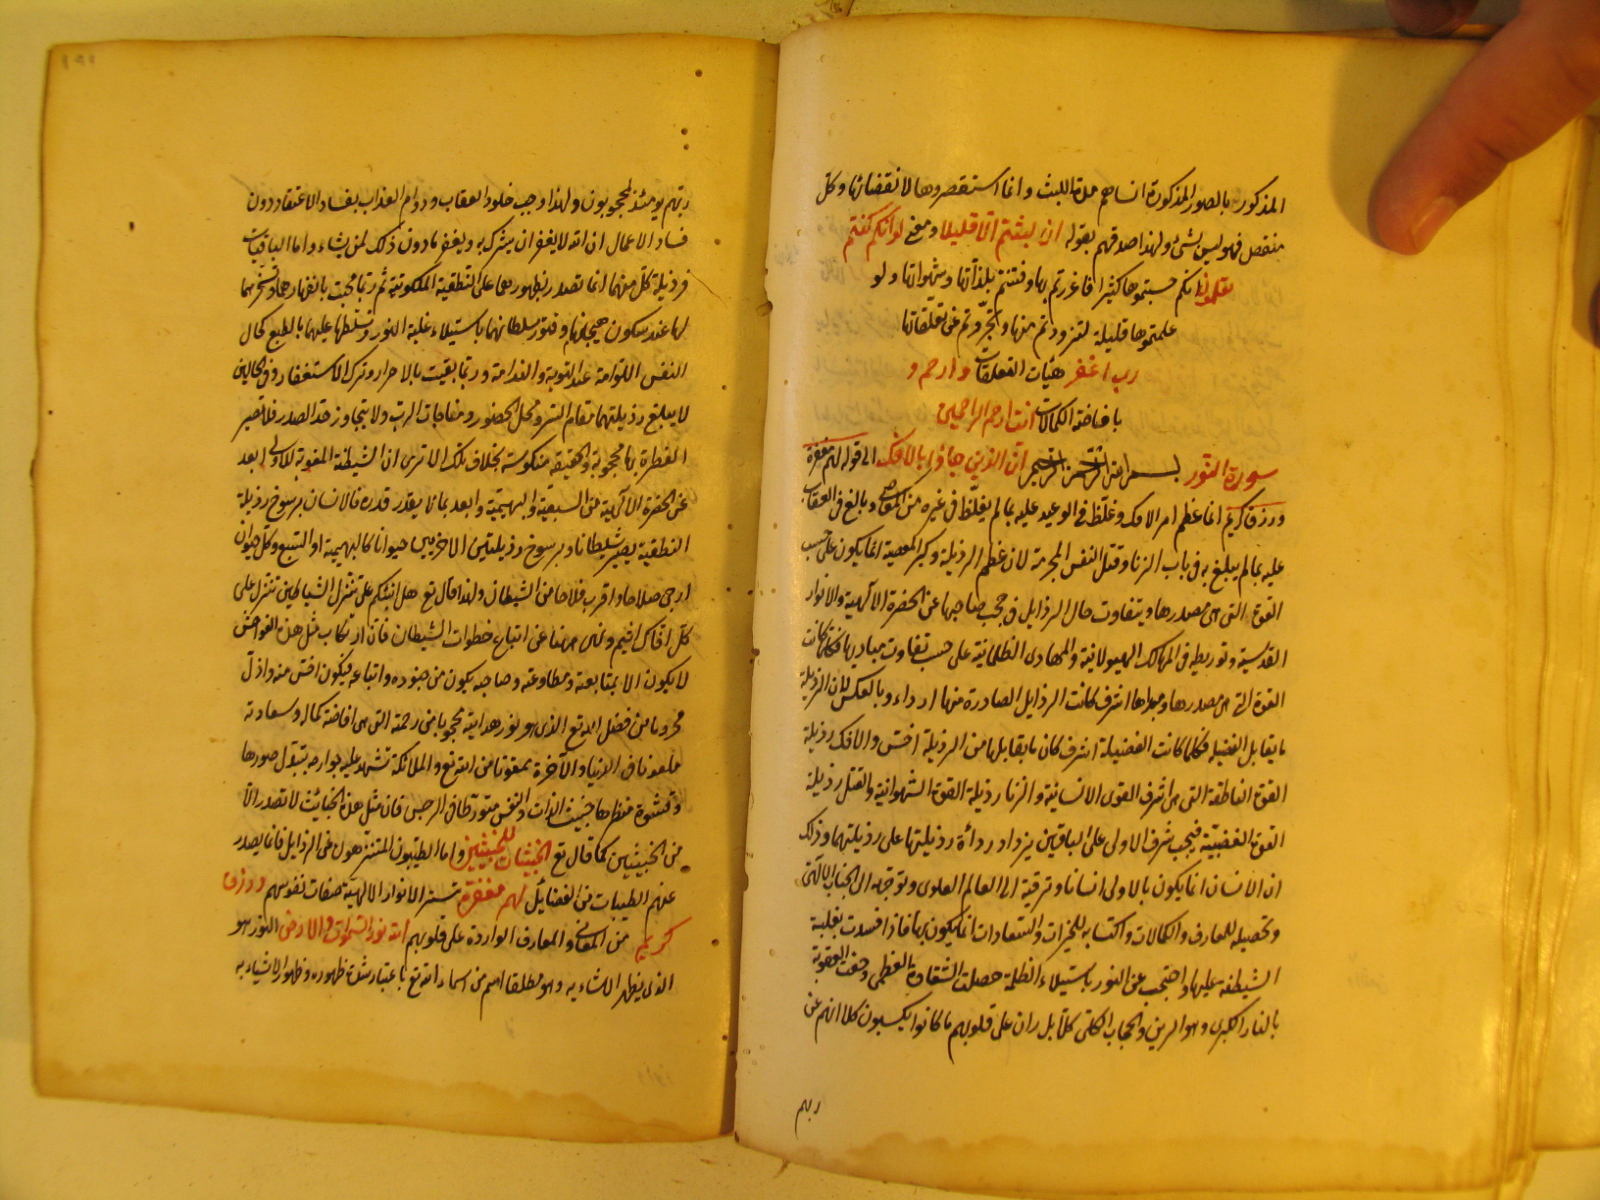 المذكورة بالصور المذكورة انساهم مدة اللبث وانما استقصروها لانقضائها وكل
منقض فهو ليس بشئ ولهذا صدقهم بقوله ان لبثتم الا قليلا ومعنى لو انكم كنتم
تعلمون انكم حسبتموها كثيرا فاغررتم بها وفتنتم بلذاتها وشهواتها ولو
علمتموها قليلة لتزودتم منها وتجردتم عن تعلقاتها
رب اغفر هيئات التعلقات وارحم و
بافاضة الكمالات انت ارحم الراحمين
سورة النور بسم الله الرحمن الرحيم ان الذين جاؤا بالافك الى قوله لهم مغفرة
ورزق كريم انما عظم امر الافك وغلظ في الوعيد عليه بما لم يغلظ في غيره من المعاصي وبالغ في العقاب
عليه بما لم يبلغ به في باب الزنا وقتل النفس المحرمة لان عظم الرذيلة وكبر المعصية انما يكون على حسب
القوة التي هي مصدرها ويتفاوت حال الرذايل في حجب صاحبها عن الحضرة الالهية والانوار
القدسية وتوريطه في المهالك الهيولانية والمهاوى الظلمانية على حسب تفاوت مباديها فكلما كانت
القوة التي هي مصدرها ومبداها اشرف كانت الرذايل الصادرة منها ارداء وبالعكس لان الرذيلة
ما يقابل الفضيلة فكلما كانت الفضيلة اشرف كان ما يقابلها من الرذيلة اخس والافك رذيلة
القوة الناطقة التي هي اشرف القوى الانسانية والزنا رذيلة القوة الشهوانية والقتل رذيلة
القوة الغضبية فبحسب شرف الاولى على الباقيين يزداد رداءة رذيلتها على رذيلتهما وذلك
ان الانسان انما يكون بالاولى انسانا وترقية الى العالم العلوى وتوجهه الى الجناب الالهى
وتحصيله للمعارف والكمالات واكتسابه للخيرات والسعادات انما يكون بها فاذا فسدت بغلبة
الشيطنة عليها واحتجبت عن النور باستيلاء الظلمة حصلت الشقاوة العظمى وحقت العقوبة
بالنار الكبرى وهو الرين والحجاب الكلى كلا بل ران على قلوبهم ما كانوا يكسبون كلا انهم عن
ربهم
ربهم يومئذ لمحجوبون ولهذا وجب خلود العقاب ودوام العذاب بفساد الاعتقاد دون
فساد الاعمال ان الله لا يغفر ان يشرك به ويغفر ما دون ذلك لمن يشاء واما الباقيات
فرذيلة كل منهما انما تصدر بظهورهما على النطقية الملكوتية ثم ربما محت بانقهارهما وتسخرهما
لها عند سكون هيجانهما وفتور سلطانهما باستيلاء غلبة النور وتسلطها عليهما بالطبع كحال
النفس اللوامة عند التوبة والندامة وربما بقيت بالاصرار وترك الاستغفار وفي الحالين
لا يبلغ رذيلتهما مقام السر ومحل الحضور ومناجات الرب ولا يتجاوز حد الصدر فلا تصير
الفطرة بها محجوبة والحقيقة منكوسة بخلاف تلك الا ترى ان الشيطنة المغوية للادمى ابعد
عن الحضرة الالهية من السبعية والبهيمية وابعد بما لا يقدر قدره فالانسان برسوخ رذيلة
النطقية يصير شيطانا وبرسوخ رذيلتين الاخريين حيوانا كالبهيمية او السبع وكل حيوان
ارجى صلاحا واقرب فلاحا من الشيطان ولهذا قال تع هل انبئكم على من تنزل الشياطين تنزل على
كل افاك اثيم ونهى ههنا عن اتباع خطوات الشيطان فان ارتكاب مثل هذه الفواحش
لا يكون الا بمتابعته ومطاوعته وصاحبه يكون من جنوده واتباعه فيكون اخس منه واذل
محروما من فضل الله تع الذى هو نور هدايته محجوبا من رحمته التي هي افاضة كمال وسعادة
ملعونا في الدنيا والاخرة ممقوتا من الله تع والملائكة تشهد عليه جوارحه بتبدل صورها
وتشوه منظرها خبيث الذات والنفس متورطا في الرجس فان مثل هذه الخبائث لا تصدر الا
من الخبيثين كما قال تع الخبيثات للخبيثين واما الطيبون المتنزهون عن الرذايل فانما يصدر
عنهم الطيبات من الفضايل لهم مغفرة بستر الانوار الالهية صفات نفوسهم ورزق
كريم من المعاني والمعارف الواردة على قلوبهم الله نور السموات والارض النور هو
الذى يظهر الاشياء به وهو مطلقا اسم من اسماء الله تع باعتبار شدة ظهوره وظهور الاشياء به